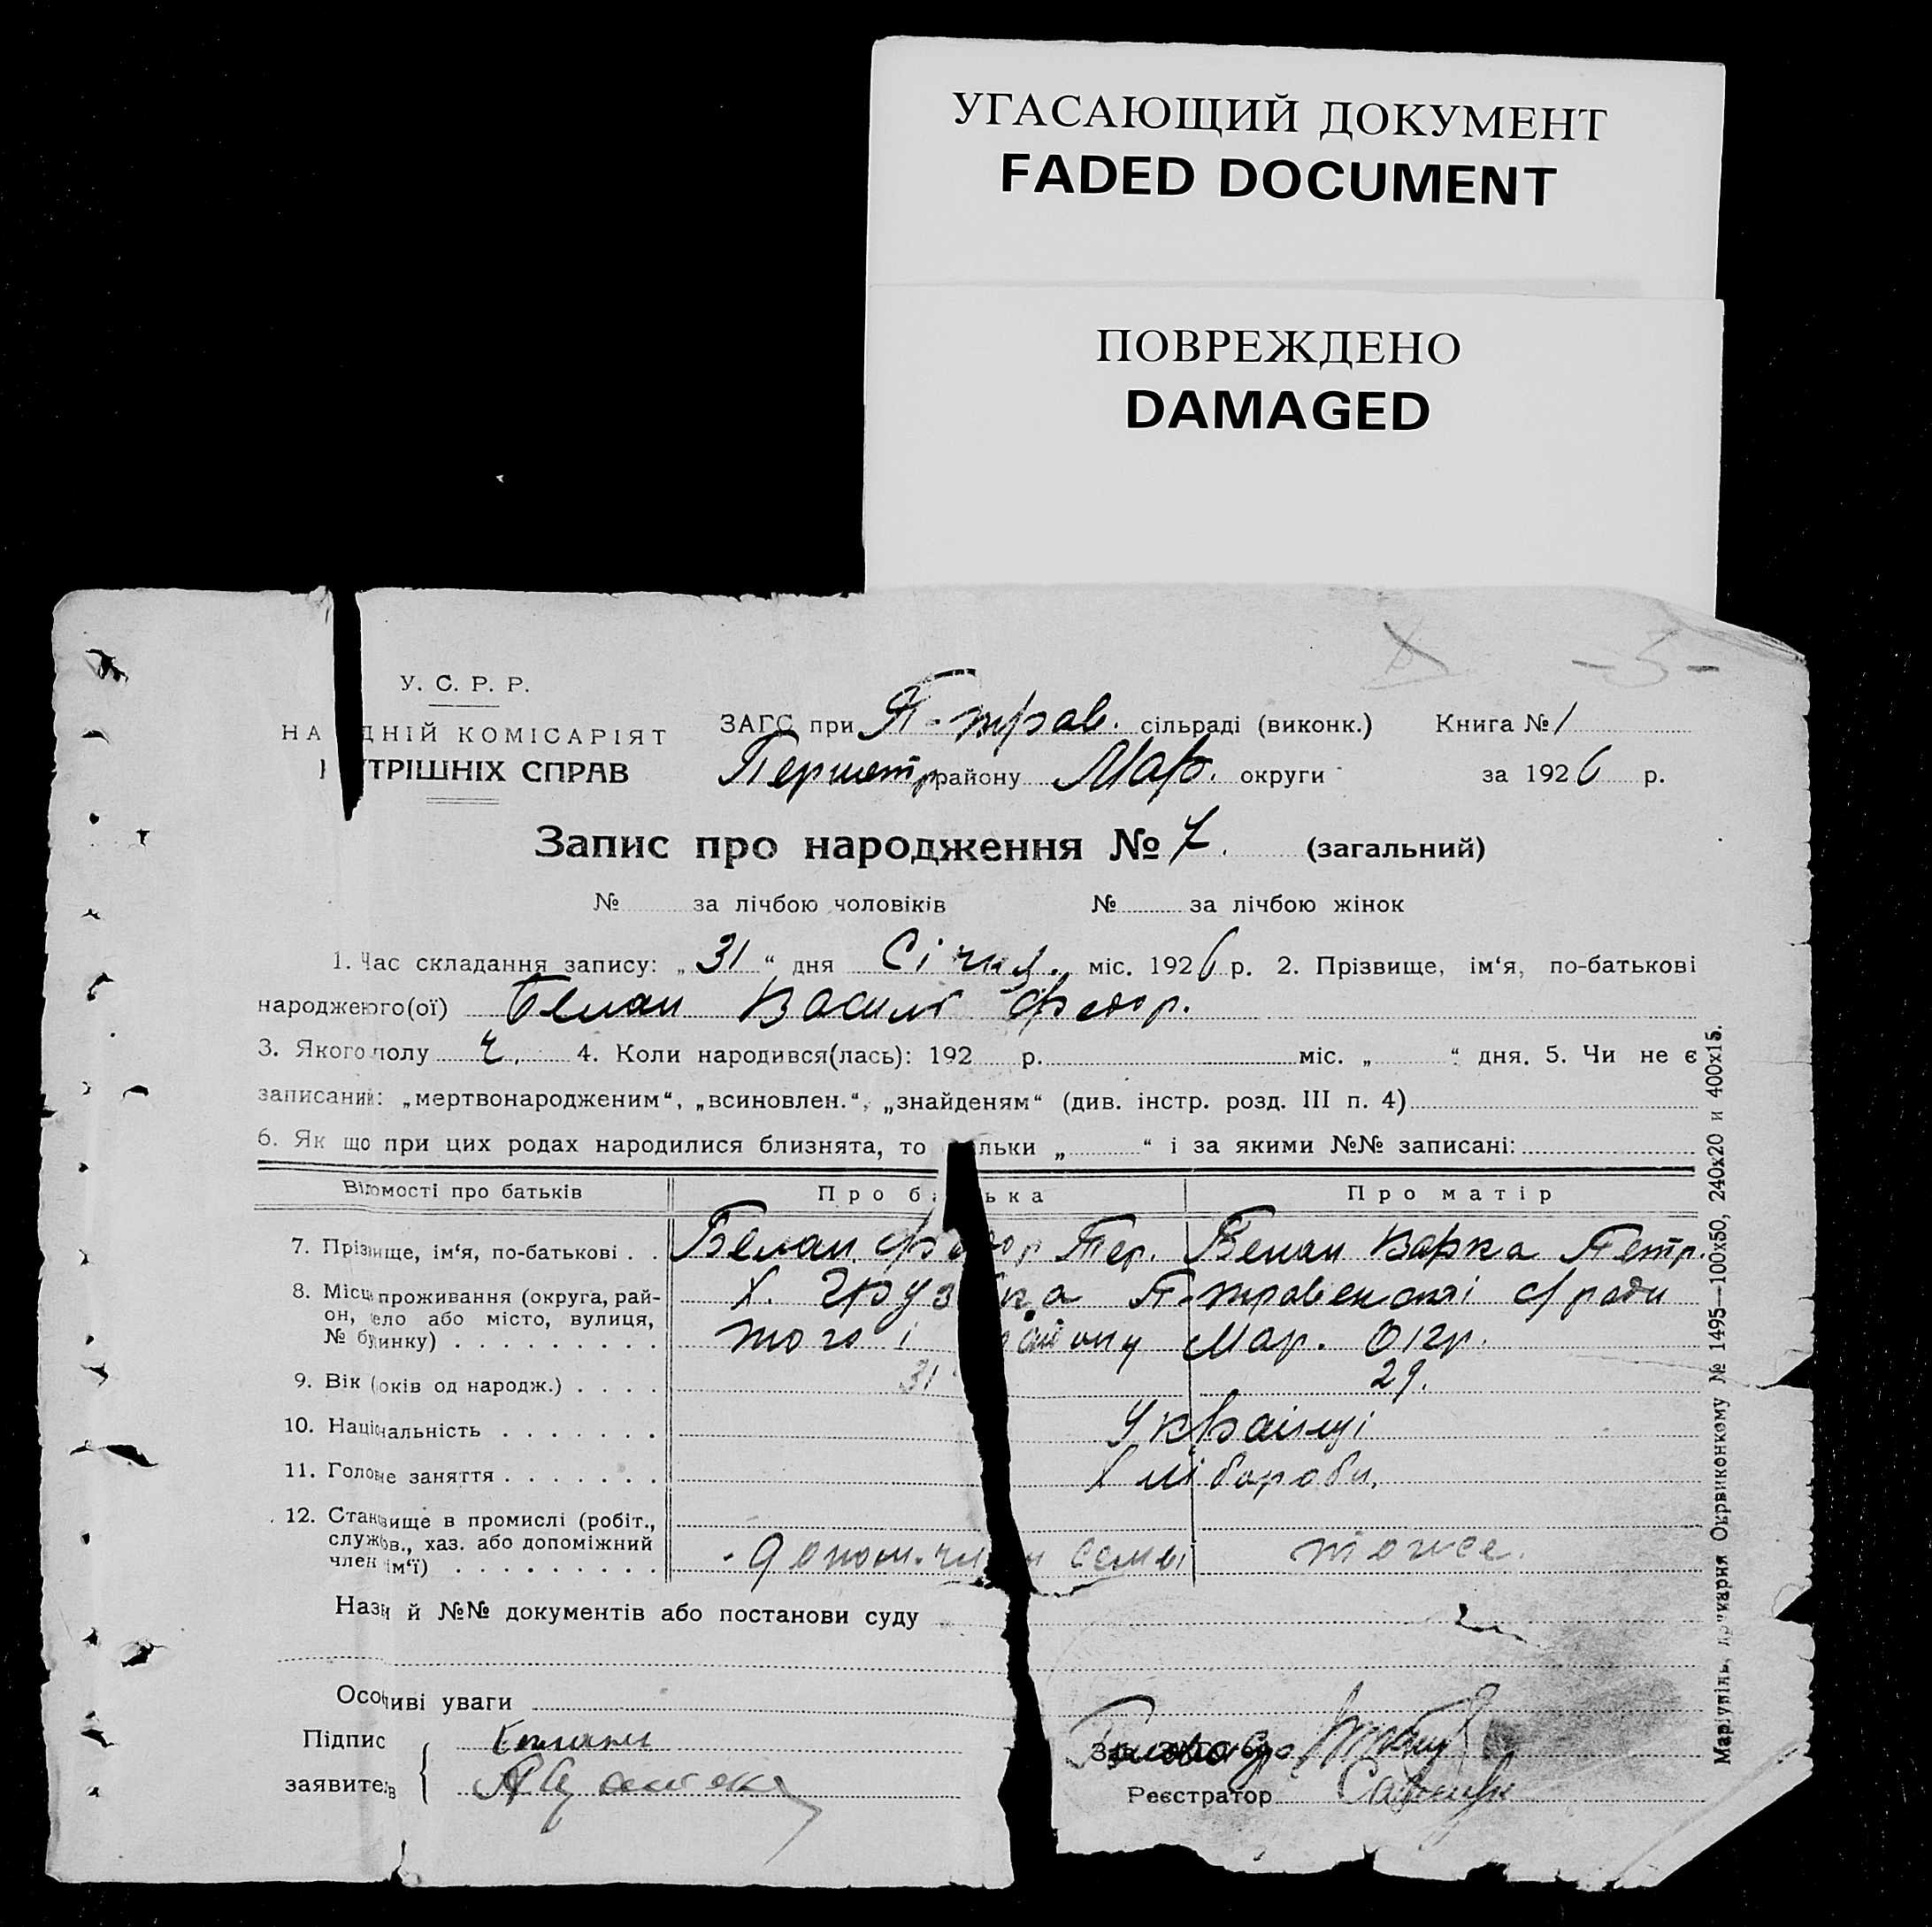 УГАСАЮЩИЙ ДОКУМЕНТ
FADED DOCUMENT
ПОВРЕЖДЕНО
DAMAGED
- 5 -
У. С. Р. Р.
НА ДНІЙ КОМІСАРІЯТ
УТРІШНІХ СПРАВ
ЗАГС при П-трав. сільраді (виконк.) Книга № 1
Першотр району Мар. округи за 1926 р.
Запис про народження № 7. (загальний)
№ за лічбою чоловіків № за лічбою жінок
1. Час складання запису: „31“ дня Січня. міс. 1926 р. 2. Прізвище, ім‘я, по-батькові
народженого(ої) Белан Василь Федор.
3. Якого полу ч. 4. Коли народився(лась): 192 р. міс. „ “ дня. 5. Чи не є
записаний: „мертвонародженим“, „всиновлен.“, „знайденям“ (див. інстр. розд. III п. 4)
6. Як що при цих родах народилися близнята, то льки „ “ і за якими №№ записані:
Відомості про батьків Про б ька Про матір
7. Прізвище, ім‘я, по-батькові . . Белан Федор Пер. Белан Варка Петр.
8. Місце проживання (округа, рай-
он, село або місто, вулиця,
№ будинку) . . . . . . . . .
Х. Груз ка П-травенскі с/ради
того і району Мар. Окр.
9. Вік (років од народж.) . . . . 31 29.
10. Національність . . . . . . . Українці
11. Головне заняття . . . . . . . Хлібороби.
12. Становище в промислі (робіт.,
службов., хаз. або допоміжний
член сім‘ї) . . . . . . . . .
допом. чл н семьі тоже.
Назви й №№ документів або постанови суду
Особливі уваги
Підпис
заявителів
Зав. ЗАГС‘ом
Реєстратор
Маріупіль, друкарня Окрвиконкому № 1495—100х50, 240х20 и 400х15.